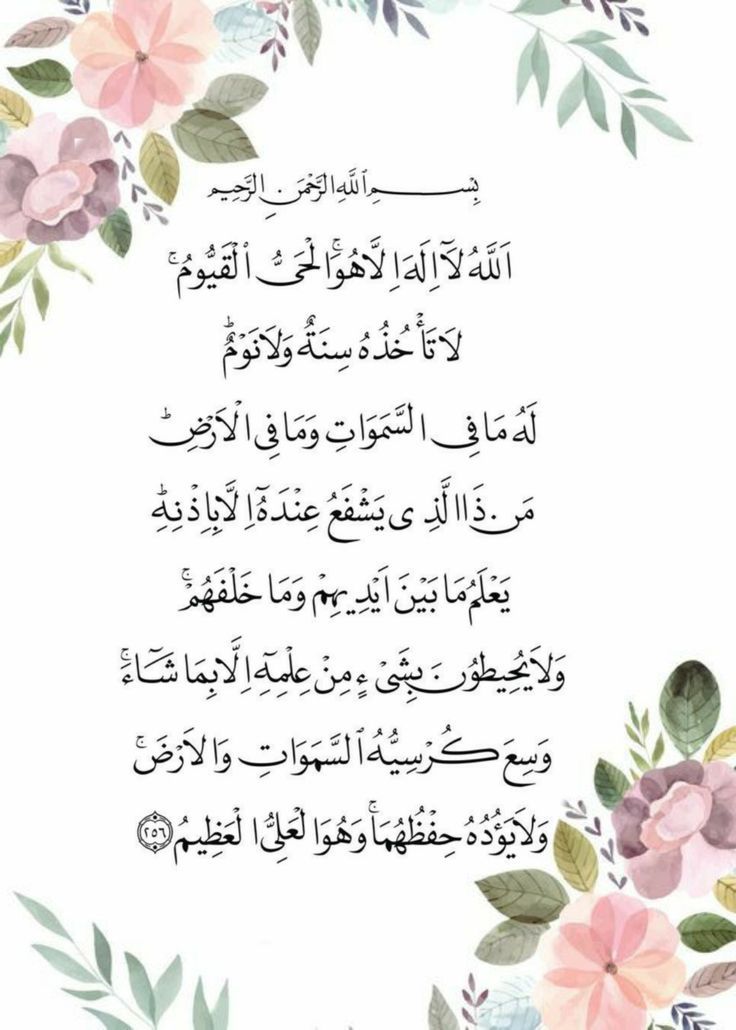 بِسْمِ ٱللَّهِ الرَّحْمَنِ الرَّحِيمِ
اَللَّهُ لَآ اِلَهَ اِلَّا هُوَۚ الْحَىُّ ٱلْقَيُّومُۚ
لَا تَأْخُذُهُ سِنَةٌ وَلَا نَوْمٌؕ
لَهُ مَا فِى السَّمَوَاتِ وَمَا فِى الْاَرْضِؕ
مَنْ ذَا الَّذِى يَشْفَعُ عِنْدَهُٓ اِلَّا بِاِذْنِهِؕ
يَعْلَمُ مَا بَيْنَ اَيْدِيهِمْ وَمَا خَلْفَهُمْۚ
وَلَا يُحِيطُونَ بِشَىْءٍ مِنْ عِلْمِهِٓ اِلَّا بِمَا شَٓاءَۚ
وَسِعَ كُرْسِيُّهُ ٱلسَّمَوَاتِ وَالْاَرْضَۚ
وَلَا يَؤُدُهُ حِفْظُهُمَاۚ وَهُوَ الْعَلِىُّ الْعَظِيمُ ﴿٢٥٦﴾